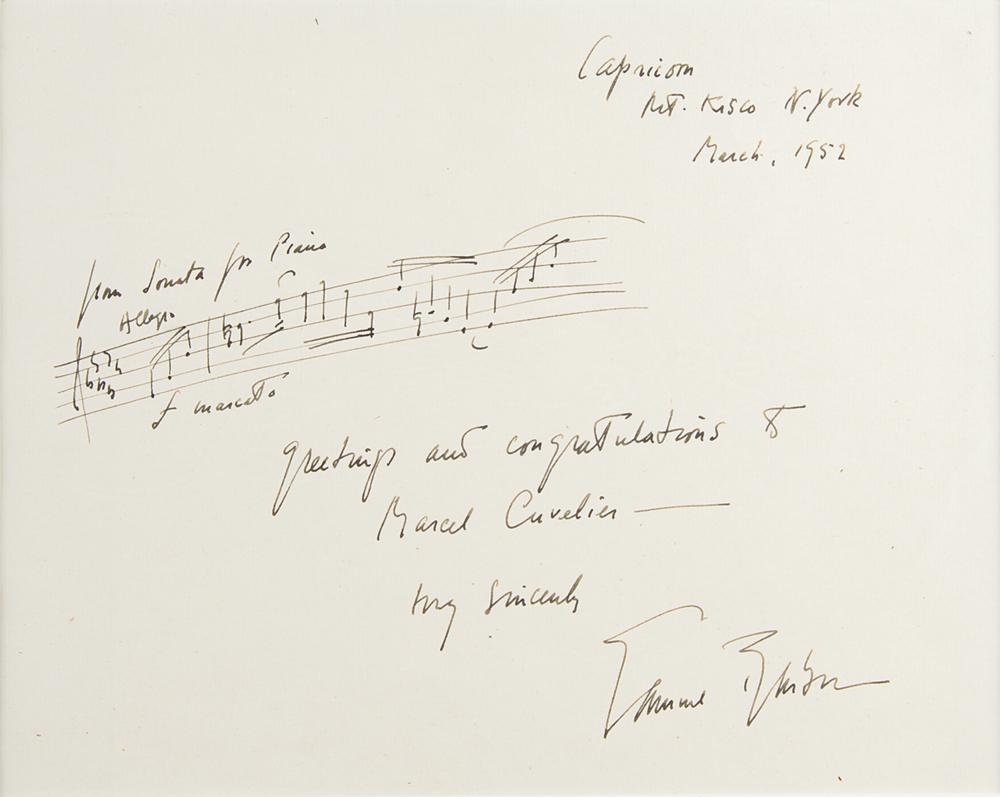 Capricorn
Mt. Kisco N. York
March, 1952
from Sonata for Piano
Allegro
f marcato
greetings and congratulations to
Marcel Cuvelier —
Very Sincerely
Samuel Barber